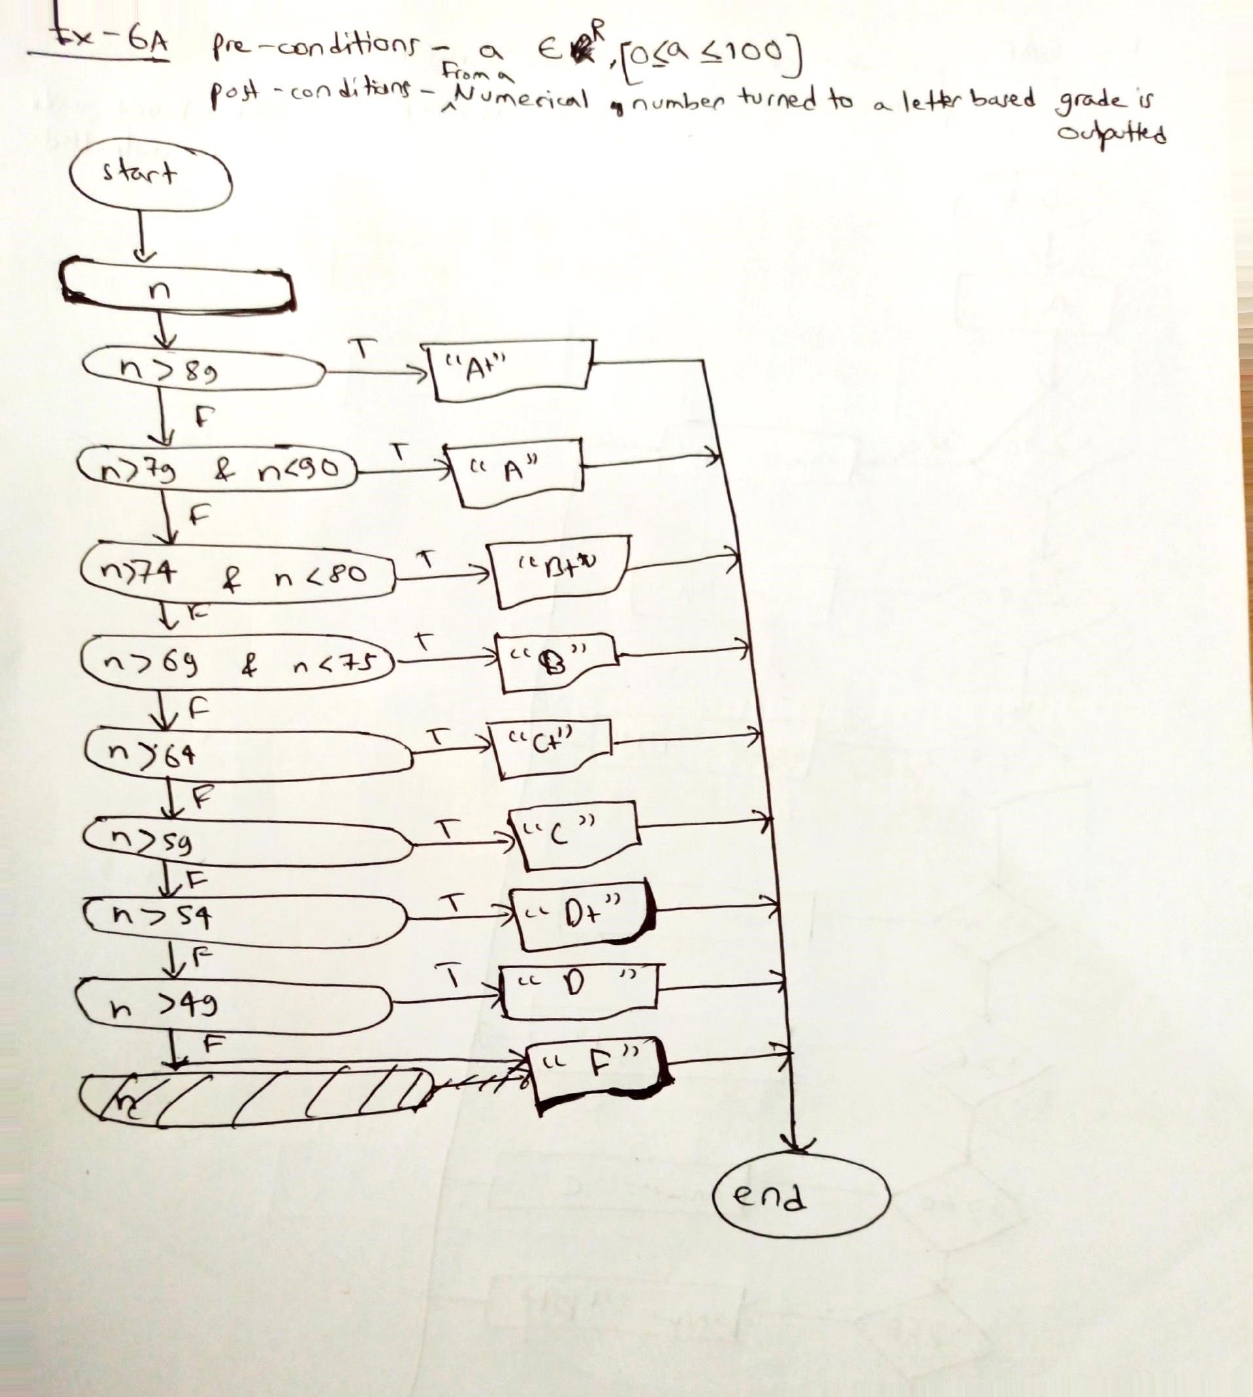 Ex-6A pre-conditions - a ∈ R, [0≤a≤100]
post-conditions - From a Numerical number turned to a letter based grade is
outputted
start
n
n>89 T "A+"
F
n>79 & n<90 T "A"
F
n>74 & n<80 T "B+"
F
n>69 & n<75 T "B"
F
n>64 T "C+"
F
n>59 T "C"
F
n>54 T "D+"
F
n>49 T "D"
F
"F"
end